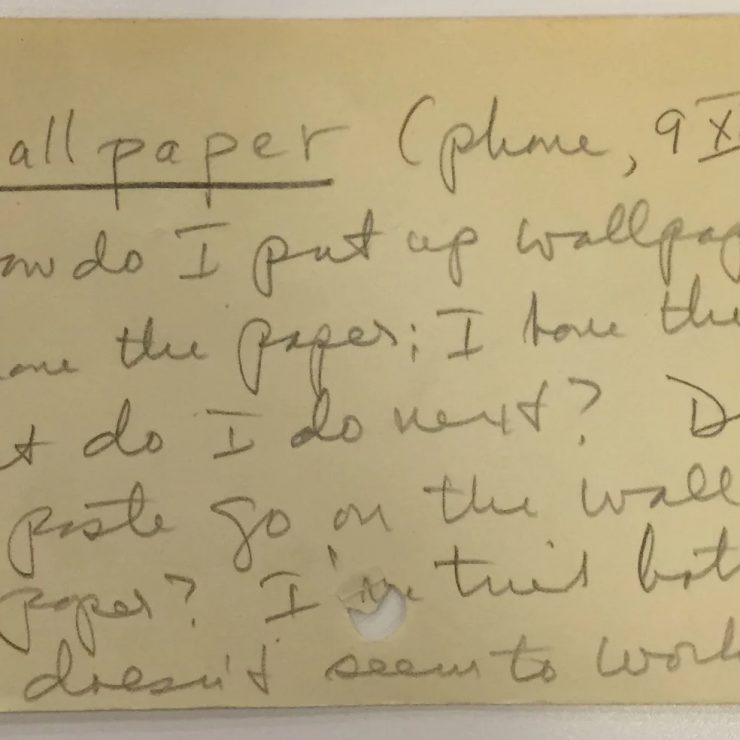 allpaper (phone, 9 X
ow do I put up wallpap
the paper; I have the
t do I do next? D
paste go on the wall
paper? I've tried bot
doesn't seem to work